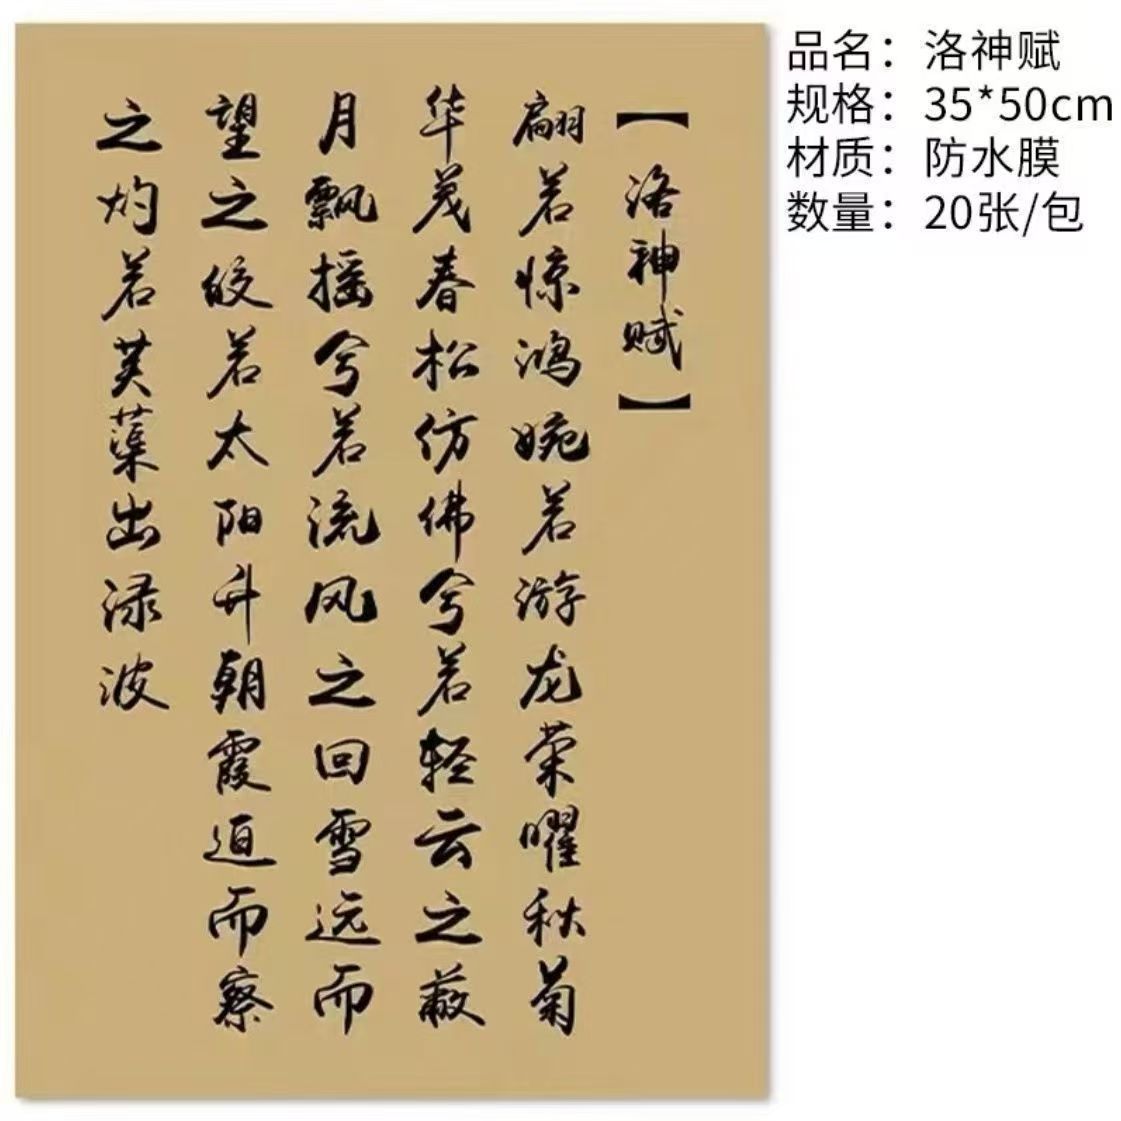 【洛神赋】
翩若惊鸿婉若游龙荣曜秋菊
华茂春松仿佛兮若轻云之蔽
月飘摇兮若流风之回雪远而
望之皎若太阳升朝霞迫而察
之灼若芙蕖出渌波
品名：洛神赋
规格：35*50cm
材质：防水膜
数量：20张/包